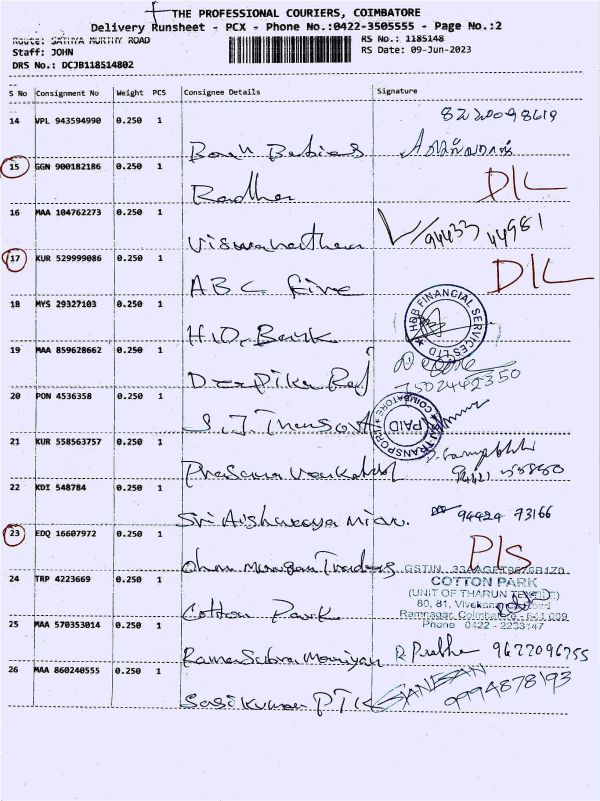 THE PROFESSIONAL COURIERS, COIMBATORE
Delivery Runsheet - PCX - Phone No.:0422-3505555 - Page No.:2
Route: SATHYA MURTHY ROAD
RS No.: 1185148
Staff: JOHN
RS Date: 09-Jun-2023
DRS No.: DCJB118514802
S No Consignment No Weight PCS Consignee Details Signature
14 VPL 943594990 0.250 1
15 GGN 900182186 0.250 1 Radha D/L
16 MAA 104762273 0.250 1 Viswanathan 94433 44981
17 KUR 529999086 0.250 1 ABC D/L
18 MYS 29327103 0.250 1 Bank HDB FINANCIAL SERVICES LTD
19 MAA 859628662 0.250 1 Deepika Raj 7502442350
20 PON 4536358 0.250 1 S.J. TRANSPORT COIMBATORE PAID
21 KUR 558563757 0.250 1 Prasanna Venkatesh
22 KDI 548784 0.250 1 Sri Aishwarya 94424 73166
23 EDQ 16607972 0.250 1 Ohm Murugan Traders P/S
24 TRP 4223669 0.250 1 Cotton Park
GSTIN
COTTON PARK
(UNIT OF THARUN
80, 81,
Ramnagar, Coimbatore - 641 009
Phone 0422 - 2233147
25 MAA 570353014 0.250 1 Rama Subramaniyan R. Prabha 9677096755
26 MAA 860240555 0.250 1 Sasikumar PTK GANESAN 9994878193